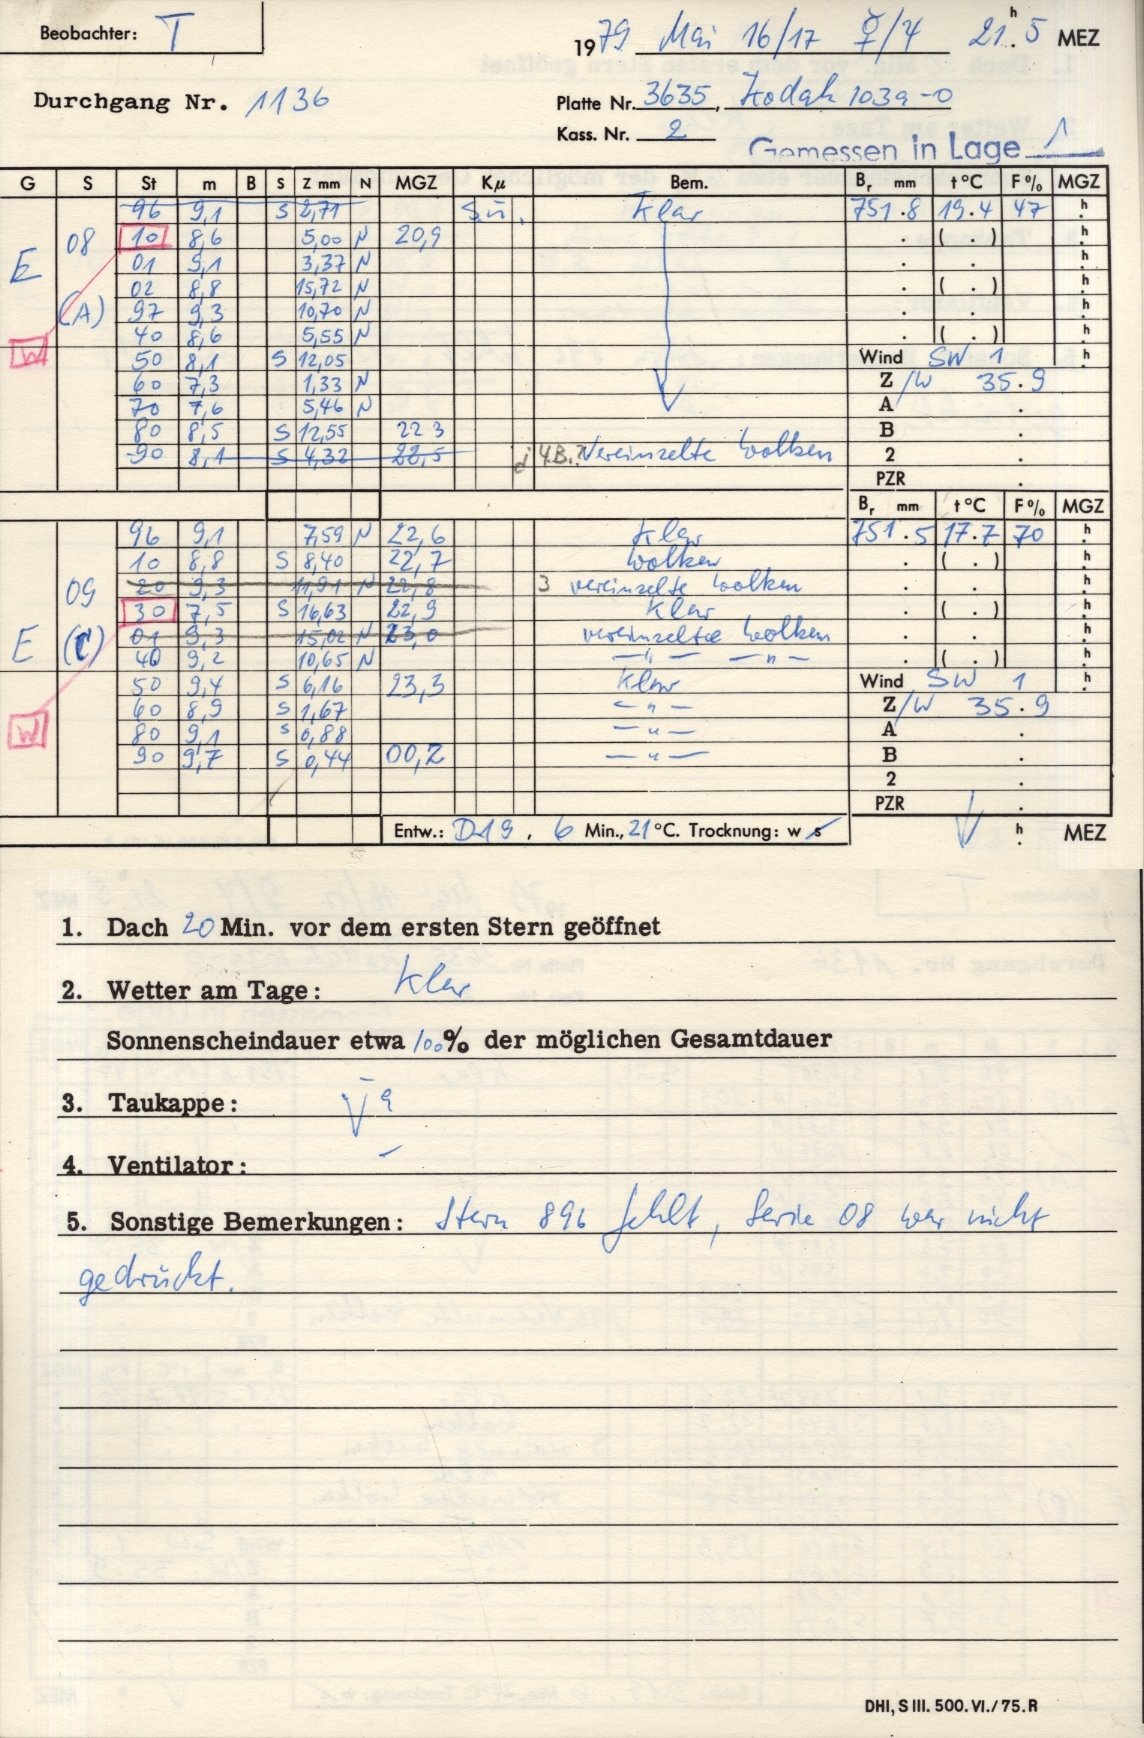 Beobachter: T
1979 Mai 16/17 ☿/♃ 21h.5 MEZ
Durchgang Nr. 1136
Platte Nr. 3635, Kodak 103a-O
Kass. Nr. 2
Gemessen in Lage 1
G S St m B S Z mm N MGZ Kµ Bem. Br mm t°C F% MGZ
96 9,1 S 2,71 Klar 751.8 19.4 47 h
08 10 8,6 5,00 N 20,9 . ( . ) h
E 01 9,1 3,37 N . . h
02 8,8 15,72 N . ( . ) h
(A) 97 9,3 10,70 N . . h
40 8,6 5,55 N . ( . ) h
W 50 8,1 S 12,05 Wind SW 1 h
60 7,3 1,33 N Z/W 35.9
70 7,6 5,46 N A .
80 8,5 S 12,55 22 3 B .
90 8,1 S 4,32 22,5 4B.? Vereinzelte Wolken 2 .
PZR .
Br mm t°C F% MGZ
96 9,1 7,59 N 22,6 Klar 751.5 17.7 70 h
10 8,8 S 8,40 22,7 Wolken . ( . ) h
09 20 9,3 11,91 N 22,8 3 vereinzelte Wolken . . h
30 7,5 S 16,63 22,9 Klar . ( . ) h
E (C) 01 9,3 15,02 N 23,0 vereinzelte Wolken . . h
40 9,2 10,65 N — " — — " — . ( . ) h
50 9,4 S 6,16 23,3 Klar Wind SW 1 h
W 60 8,9 S 1,67 — " — Z/W 35.9
80 9,1 S 6,88 — " — A .
90 9,7 S 0,44 00,2 — " — B .
2 .
PZR .
Entw.: D19, 6 Min., 21°C. Trocknung: w s h. MEZ
1. Dach 20 Min. vor dem ersten Stern geöffnet
2. Wetter am Tage: Klar
Sonnenscheindauer etwa 100% der möglichen Gesamtdauer
3. Taukappe:
4. Ventilator: –
5. Sonstige Bemerkungen: Stern 896 fehlt, Serie 08 war nicht
gedrückt.
DHI, S III. 500. VI./75. R